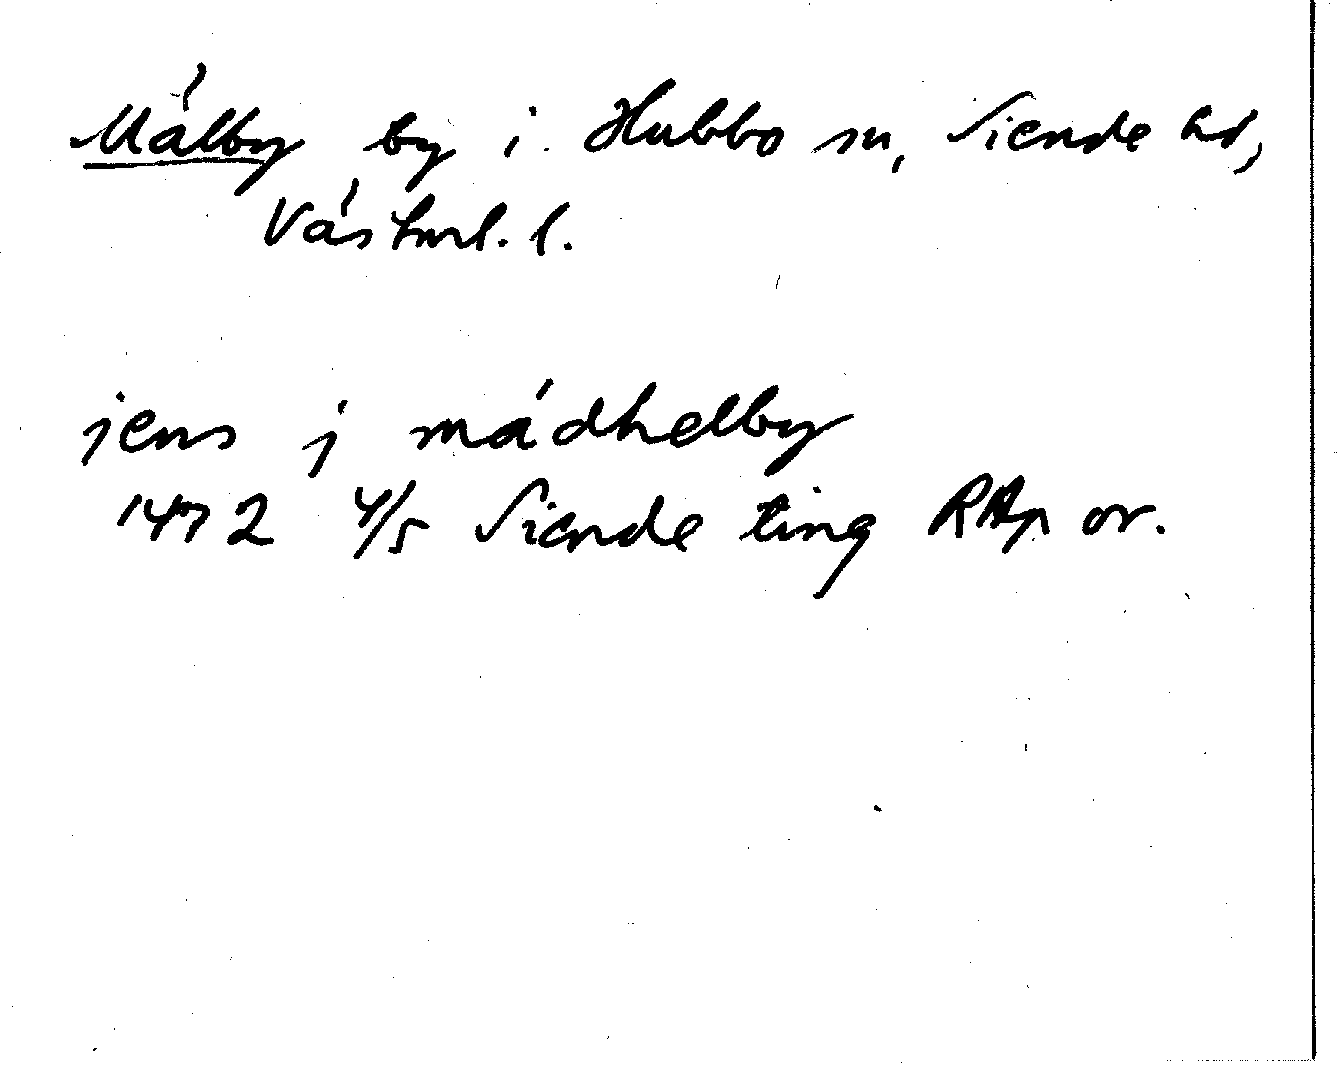 Mälby by i Hubbo sn, Siende hd,
Västml. l.
jens j mädhelby
1472 4/5 Siende ting RAp or.